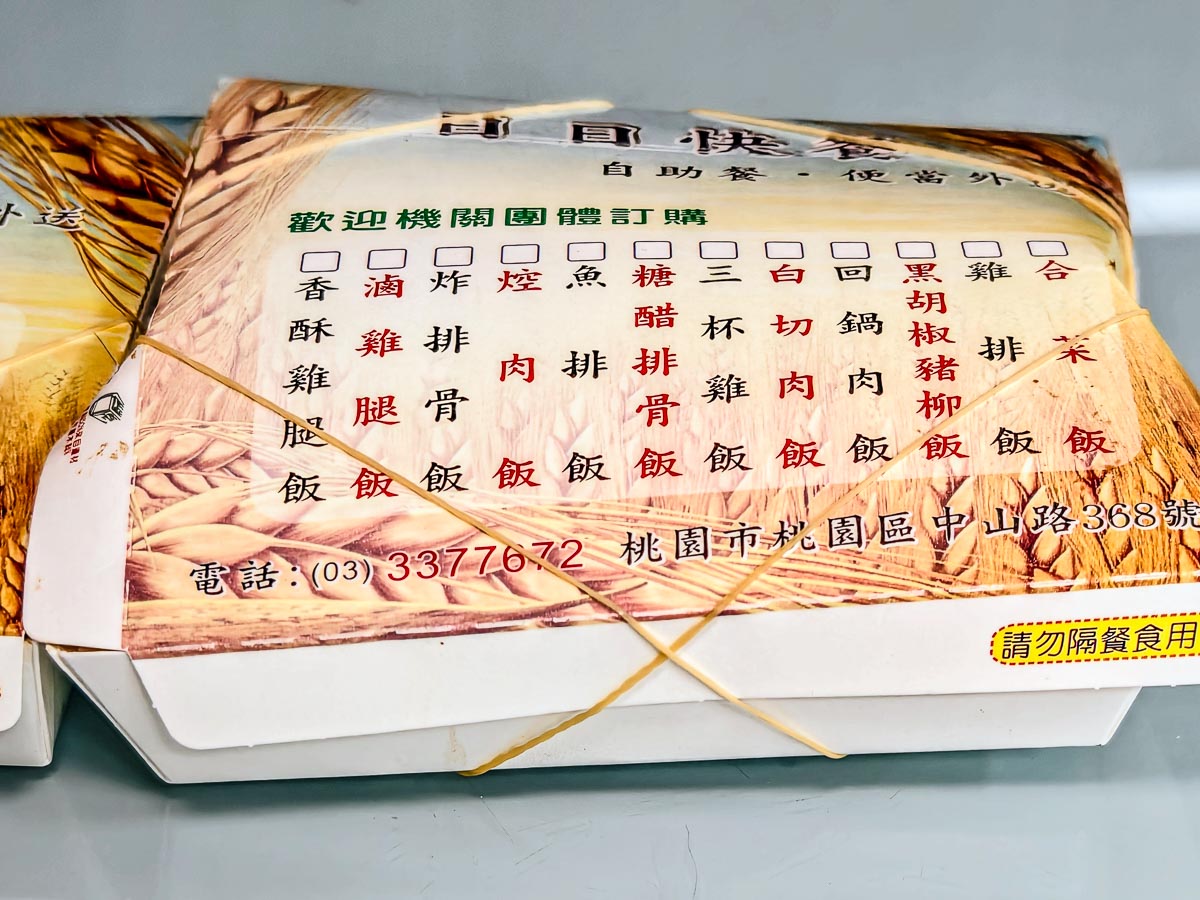 日日快餐
自助餐・便當外送
歡迎機關團體訂購
□香酥雞腿飯
□滷雞腿飯
□炸排骨飯
□焢肉飯
□魚排飯
□糖醋排骨飯
□三杯雞飯
□白切肉飯
□回鍋肉飯
□黑胡椒豬柳飯
□雞排飯
□合菜飯
電話：(03) 3377672 桃園市桃園區中山路368號
請勿隔餐食用
外送